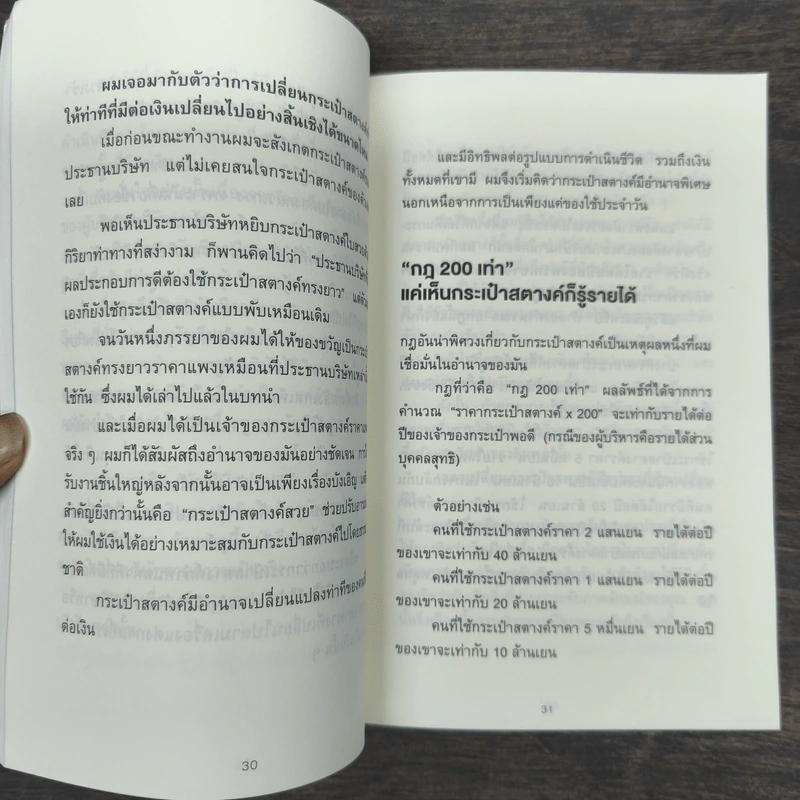 ผมเจอมากับตัวว่าการเปลี่ยนกระเป๋าสตางค์
ให้ท่าทีที่มีต่อเงินเปลี่ยนไปอย่างสิ้นเชิงได้ขนาดไหน
เมื่อก่อนขณะทำงานผมจะสังเกตกระเป๋าสตางค์
ประธานบริษัท แต่ไม่เคยสนใจกระเป๋าสตางค์ของตัวเอง
เลย
พอเห็นประธานบริษัทหยิบกระเป๋าสตางค์ใบสวย
กิริยาท่าทางที่สง่างาม ก็พานคิดไปว่า “ประธานบริษัท
ผลประกอบการดีต้องใช้กระเป๋าสตางค์ทรงยาว” แต่ตัว
เองก็ยังใช้กระเป๋าสตางค์แบบพับเหมือนเดิม
จนวันหนึ่งภรรยาของผมได้ให้ของขวัญเป็นกระเป๋า
สตางค์ทรงยาวราคาแพงเหมือนที่ประธานบริษัทเหล่า
ใช้กัน ซึ่งผมได้เล่าไปแล้วในบทนำ
และเมื่อผมได้เป็นเจ้าของกระเป๋าสตางค์ราคาแพง
จริง ๆ ผมก็ได้สัมผัสถึงอำนาจของมันอย่างชัดเจน การ
รับงานชิ้นใหญ่หลังจากนั้นอาจเป็นเพียงเรื่องบังเอิญ แต่
สำคัญยิ่งกว่านั้นคือ “กระเป๋าสตางค์สวย” ช่วยปรับ
ให้ผมใช้เงินได้อย่างเหมาะสมกับกระเป๋าสตางค์ไปโดยธรรม
ชาติ
กระเป๋าสตางค์มีอำนาจเปลี่ยนแปลงท่าทีของคน
ต่อเงิน
30
และมีอิทธิพลต่อรูปแบบการดำเนินชีวิต รวมถึงเงิน
ทั้งหมดที่เขามี ผมจึงเริ่มคิดว่ากระเป๋าสตางค์มีอำนาจพิเศษ
นอกเหนือจากการเป็นเพียงแค่ของใช้ประจำวัน
“กฎ 200 เท่า”
แค่เห็นกระเป๋าสตางค์ก็รู้รายได้
กฎอันน่าพิศวงเกี่ยวกับกระเป๋าสตางค์เป็นเหตุผลหนึ่งที่ผม
เชื่อมั่นในอำนาจของมัน
กฎที่ว่าคือ “กฎ 200 เท่า” ผลลัพธ์ที่ได้จากการ
คำนวณ “ราคากระเป๋าสตางค์ x 200” จะเท่ากับรายได้ต่อ
ปีของเจ้าของกระเป๋าพอดี (กรณีของผู้บริหารคือรายได้ส่วน
บุคคลสุทธิ)
ตัวอย่างเช่น
คนที่ใช้กระเป๋าสตางค์ราคา 2 แสนเยน รายได้ต่อปี
ของเขาจะเท่ากับ 40 ล้านเยน
คนที่ใช้กระเป๋าสตางค์ราคา 1 แสนเยน รายได้ต่อปี
ของเขาจะเท่ากับ 20 ล้านเยน
คนที่ใช้กระเป๋าสตางค์ราคา 5 หมื่นเยน รายได้ต่อปี
ของเขาจะเท่ากับ 10 ล้านเยน
31